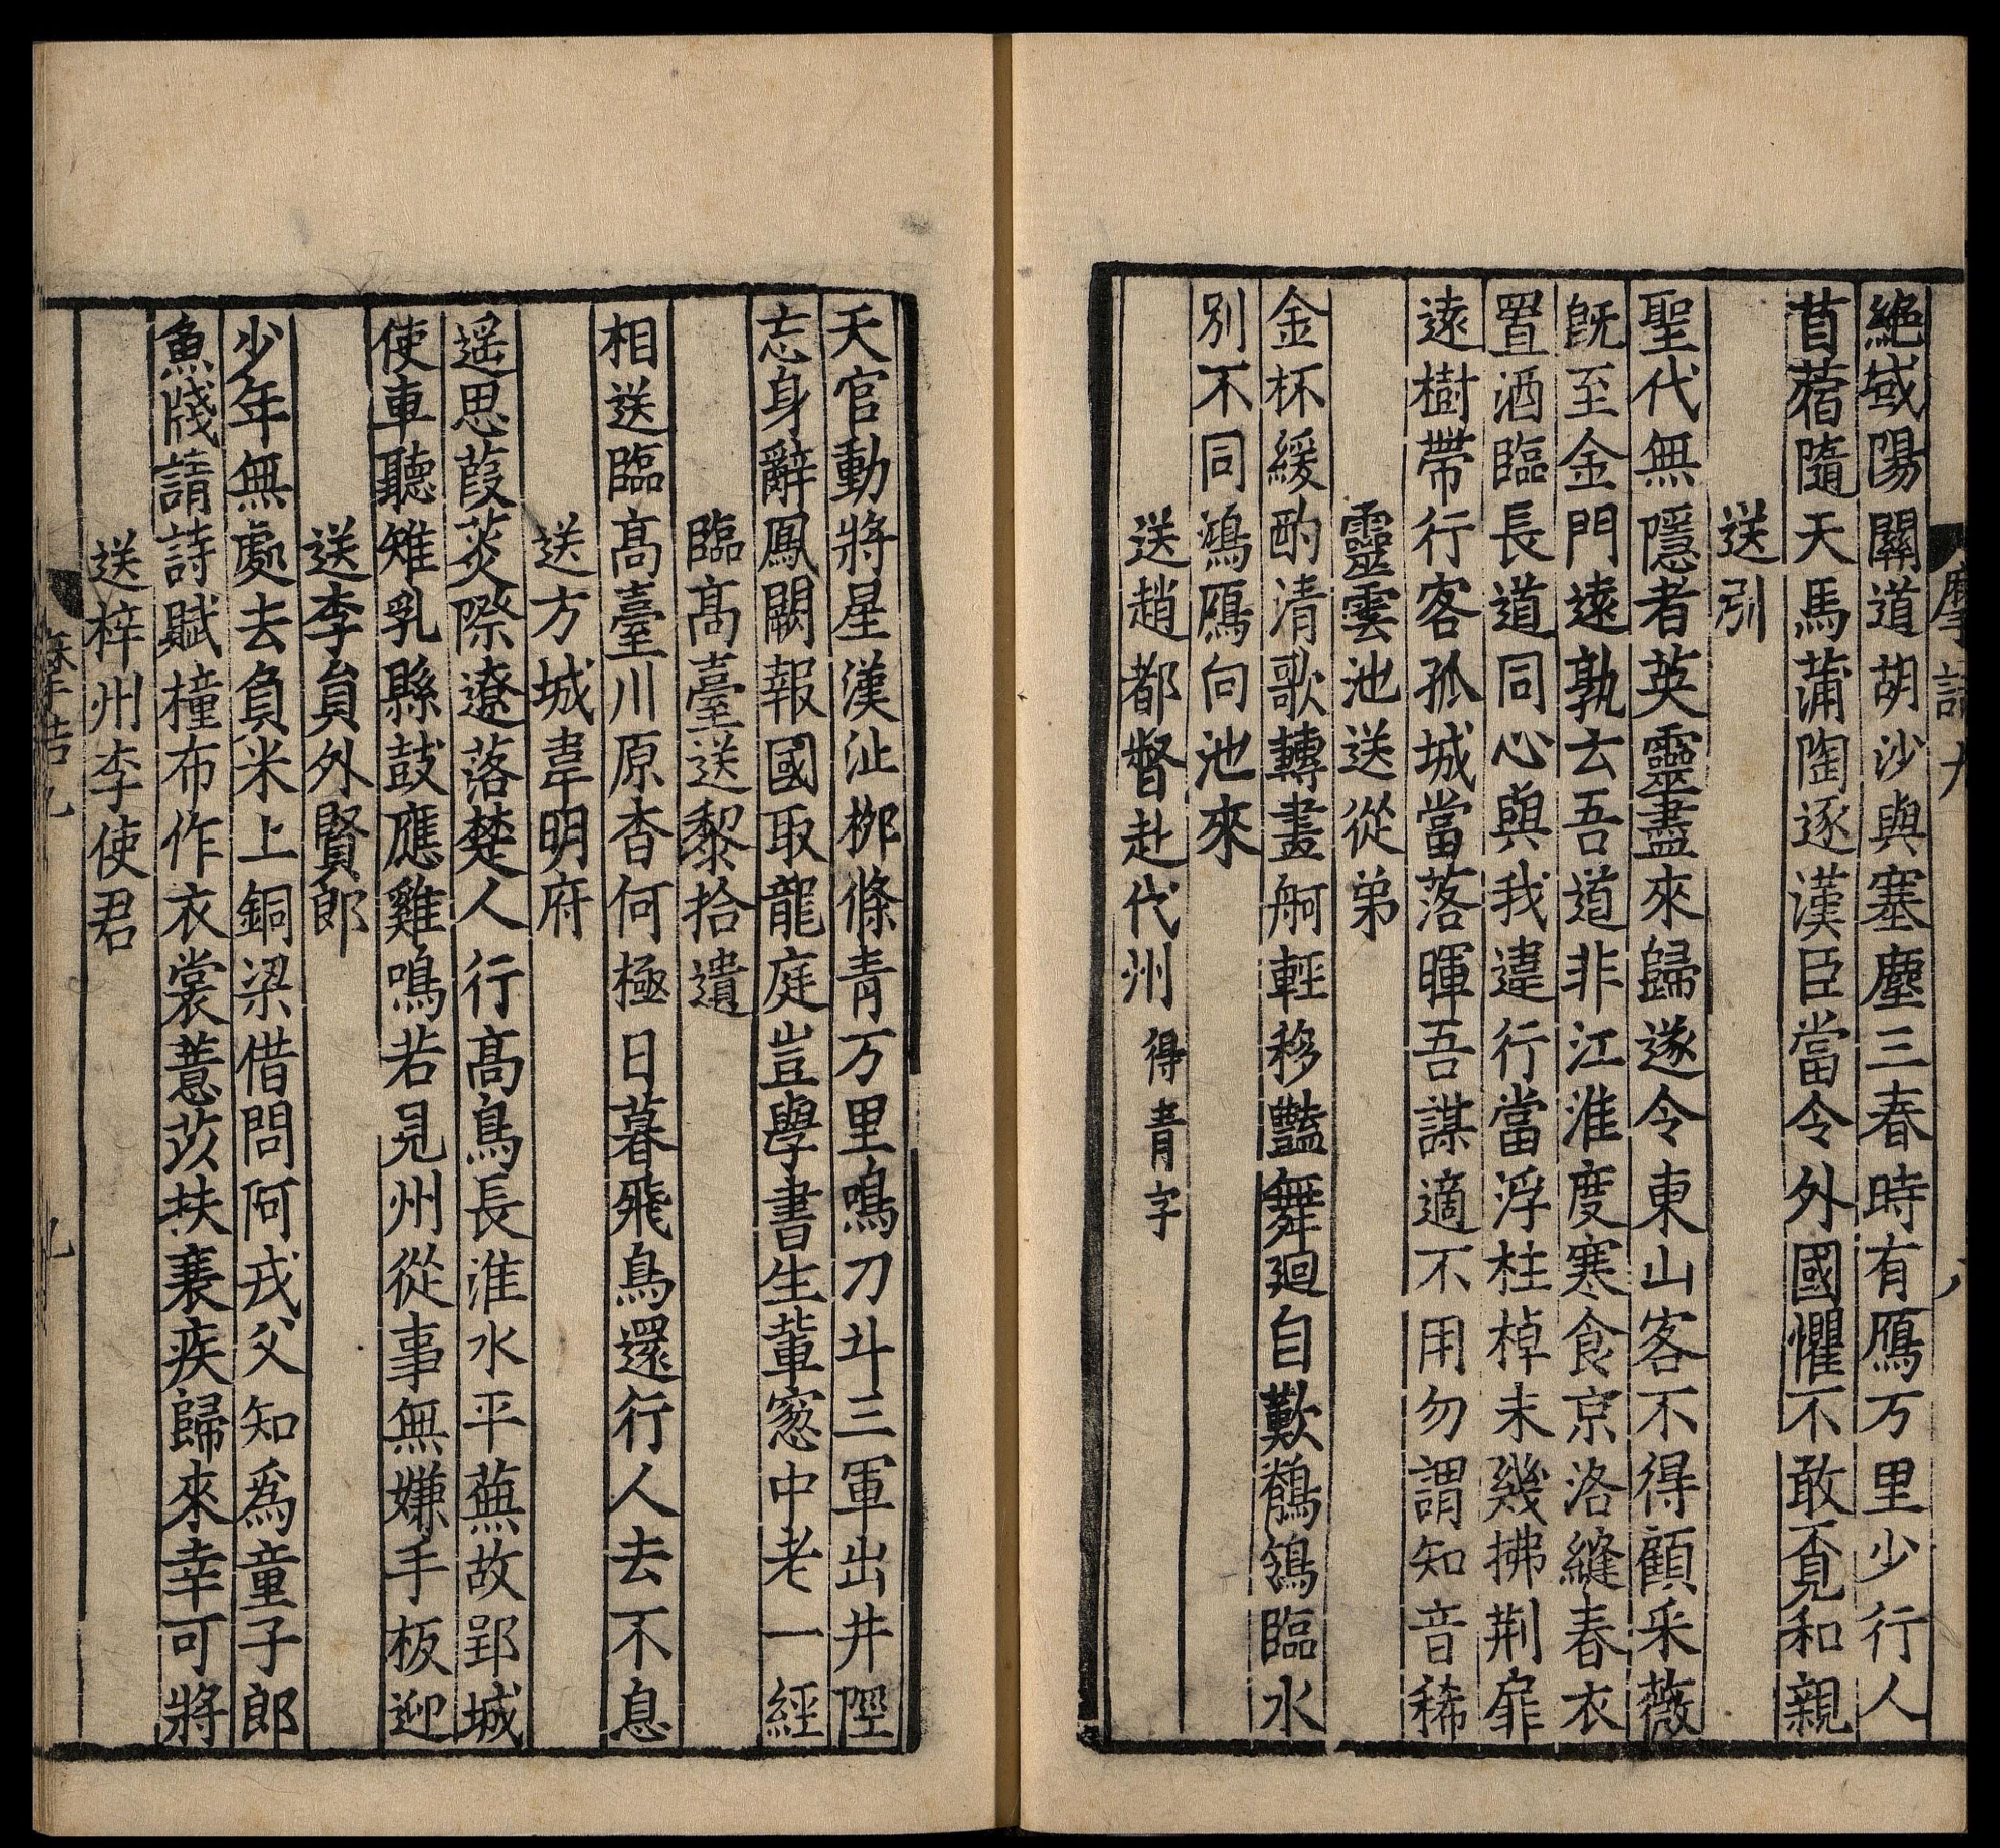 絶域陽關道胡沙與塞塵三春時有鴈万里少行人
苜蓿隨天馬蒲陶逐漢臣當令外國懼不敢覔和親
送別
聖代無隱者英靈盡來歸遂令東山客不得顧采薇
旣至金門遠孰云吾道非江淮度寒食京洛縫春衣
置酒臨長道同心與我違行當浮桂棹未幾拂荆扉
遠樹帶行客孤城當落暉吾謀適不用勿謂知音稀
靈雲池送從弟
金杯緩酌清歌轉畫舸輕移豔舞廻自歎鶺鴒臨水
別不同鴻鴈向池來
送趙都督赴代州得青字
天官動將星漢沚桞條青万里鳴刀斗三軍出井陘
忘身辭鳳闕報國取龍庭豈學書生軰窻中老一經
臨髙臺送黎拾遺
相送臨髙臺川原杳何極日暮飛鳥還行人去不息
送方城韋明府
遥思葭菼際遼落楚人行髙鳥長淮水平蕪故郢城
使車聽雉乳縣鼓應雞鳴若見州從事無嫌手板迎
送李貟外賢郎
少年無處去負米上銅梁借問阿戎父知爲童子郎
魚牋請詩賦橦布作衣裳薏苡扶衰疾歸來幸可將
送梓州李使君